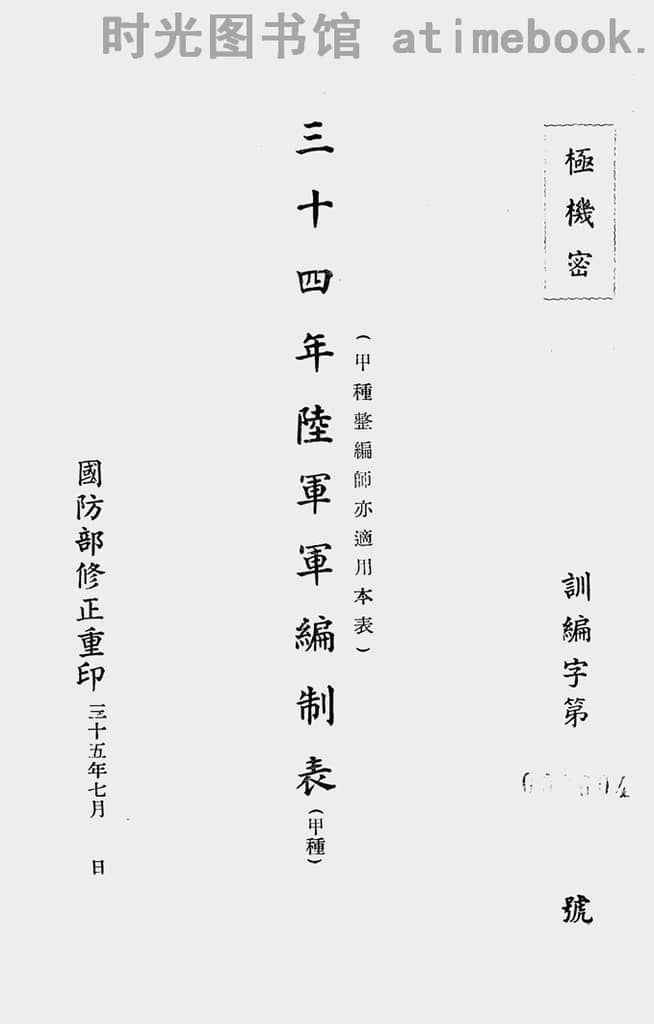 时光图书馆 atimebook.
極機密
訓編字第
號
（甲種整編師亦適用本表）
三十四年陸軍軍編制表（甲種）
國防部修正重印 三十五年七月 日